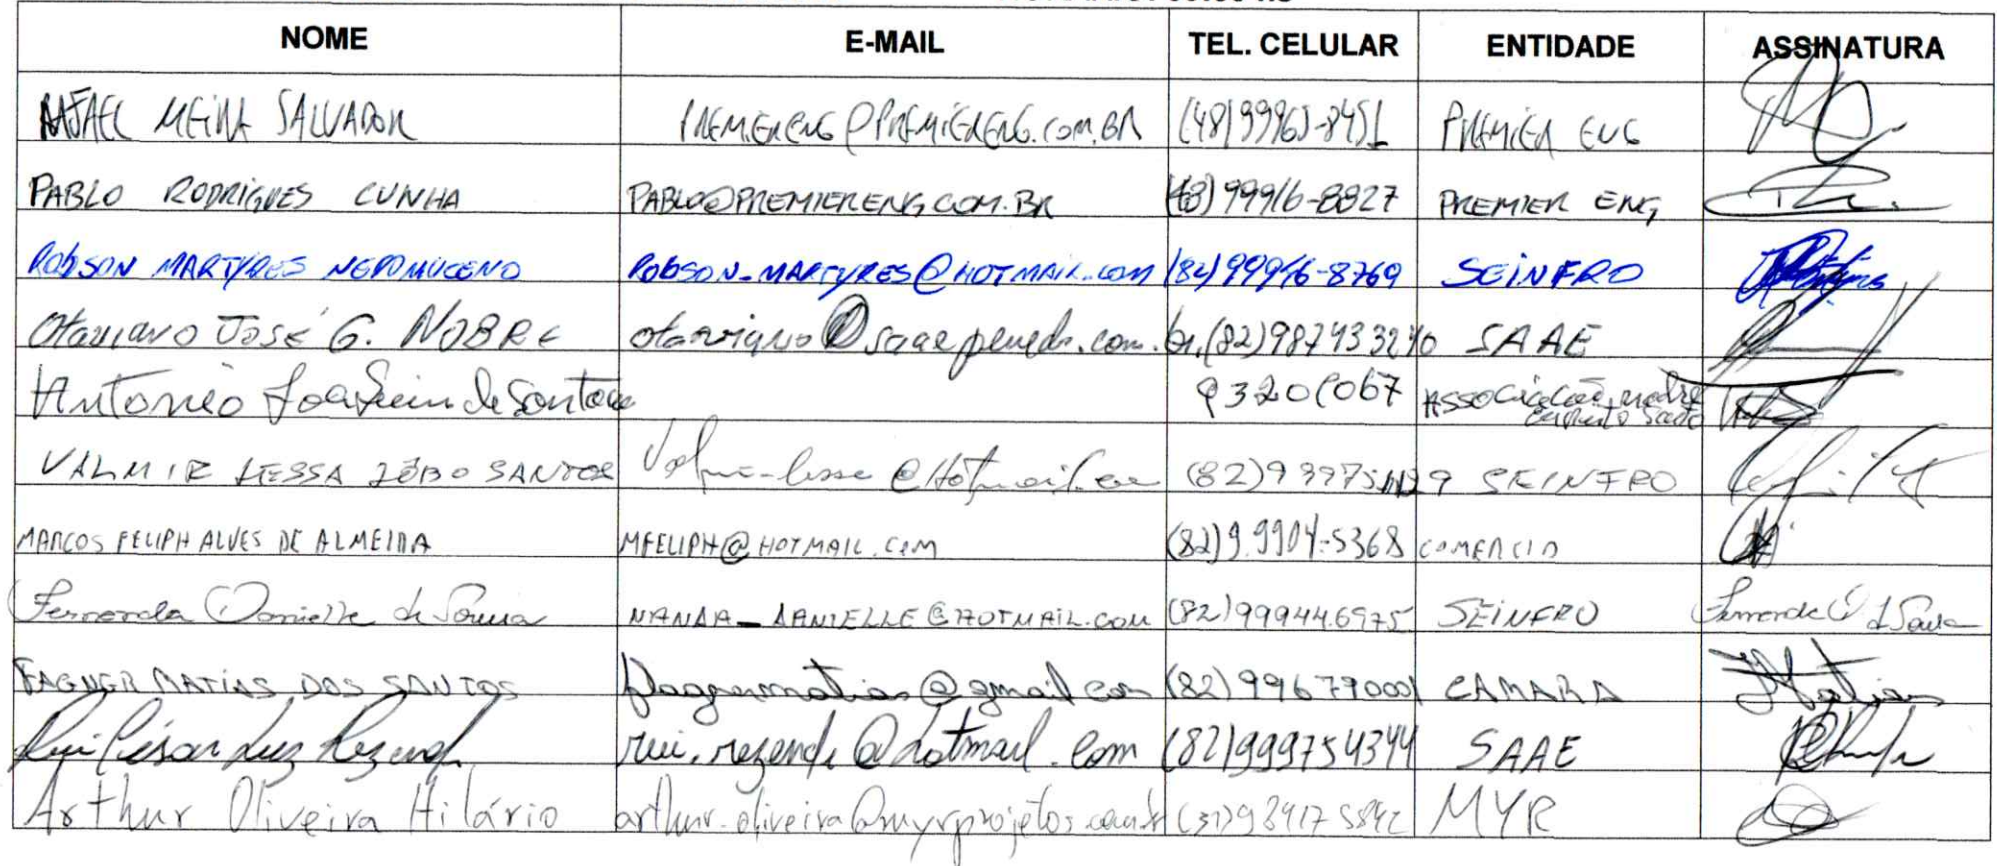 NOME E-MAIL TEL. CELULAR ENTIDADE ASSINATURA
RAFAEL MEIRA SALVADOR PREMIERENG@PREMIERENG.COM.BR (48)99965-8451 PREMIER ENG
PABLO RODRIGUES CUNHA PABLO@PREMIERENG.COM.BR (48)99916-8827 PREMIER ENG
ROBSON MARTYRES NEPOMUCENO ROBSON-MARTYRES@HOTMAIL.COM (82)99996-8769 SEINFRO
Otaviano José G. NOBRE otaviano@saaepenedo.com.br (82)987433240 SAAE
Antonio Joaquim de Santana 93201067 Associação
VALMIR LESSA LÔBO SANTOS (82) SEINFRO
MARCOS FELIPH ALVES DE ALMEIDA MFELIPH@HOTMAIL.COM (82)9.9904-5368 COMERCIO
Fernanda Danielle de Sousa NANDA_DANIELLE@HOTMAIL.COM (82)999446975 SEINFRO Fernanda D de Sousa
FAGNER MATIAS DOS SANTOS @gmail.com (82)996790001 CAMARA Matias
Rui César Luz Rezende rui.rezende@hotmail.com (82)999754344 SAAE
Arthur Oliveira Hilário arthur.oliveira@myrprojetos.com.br (31) MYR